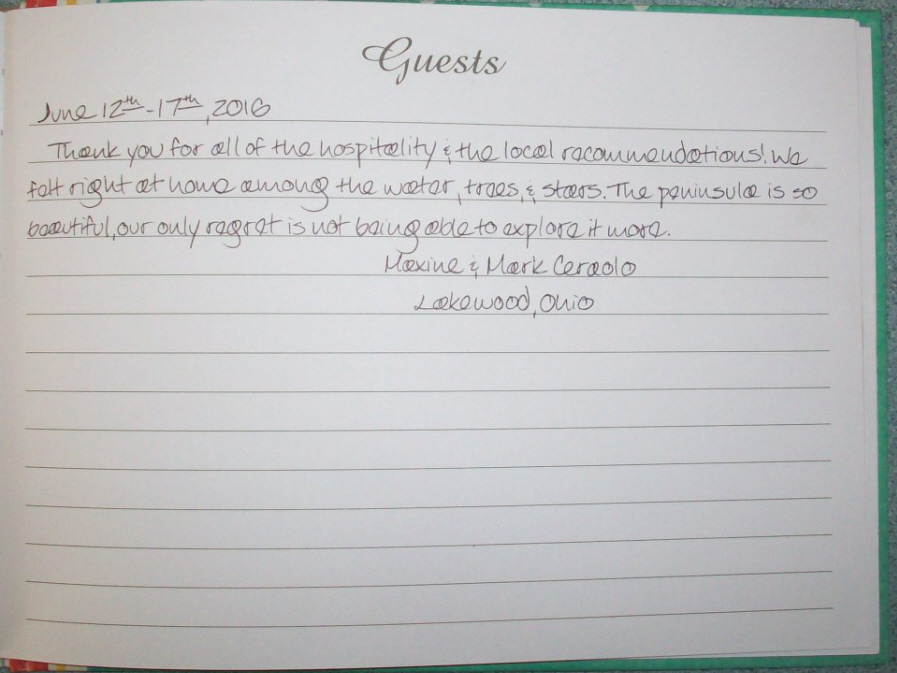 Guests
June 12th-17th, 2016
Thank you for all of the hospitality & the local recommendations! We
felt right at home among the water, trees, & stars. The peninsula is so
beautiful, our only regret is not being able to explore it more.
Maxine & Mark Ceraolo
Lakewood, Ohio